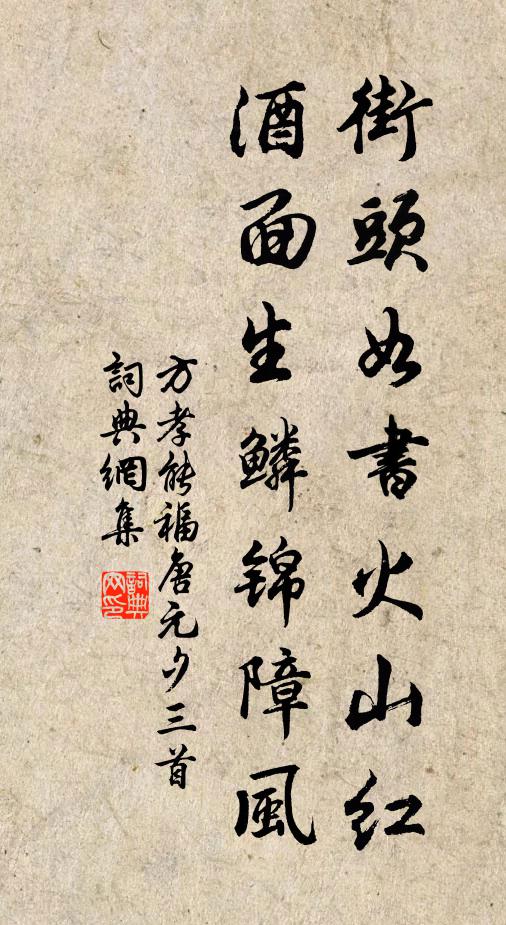 街頭如書火山红
酒面生鳞锦障風
方孝能福唐元夕三首
詞典網集
詞典网印